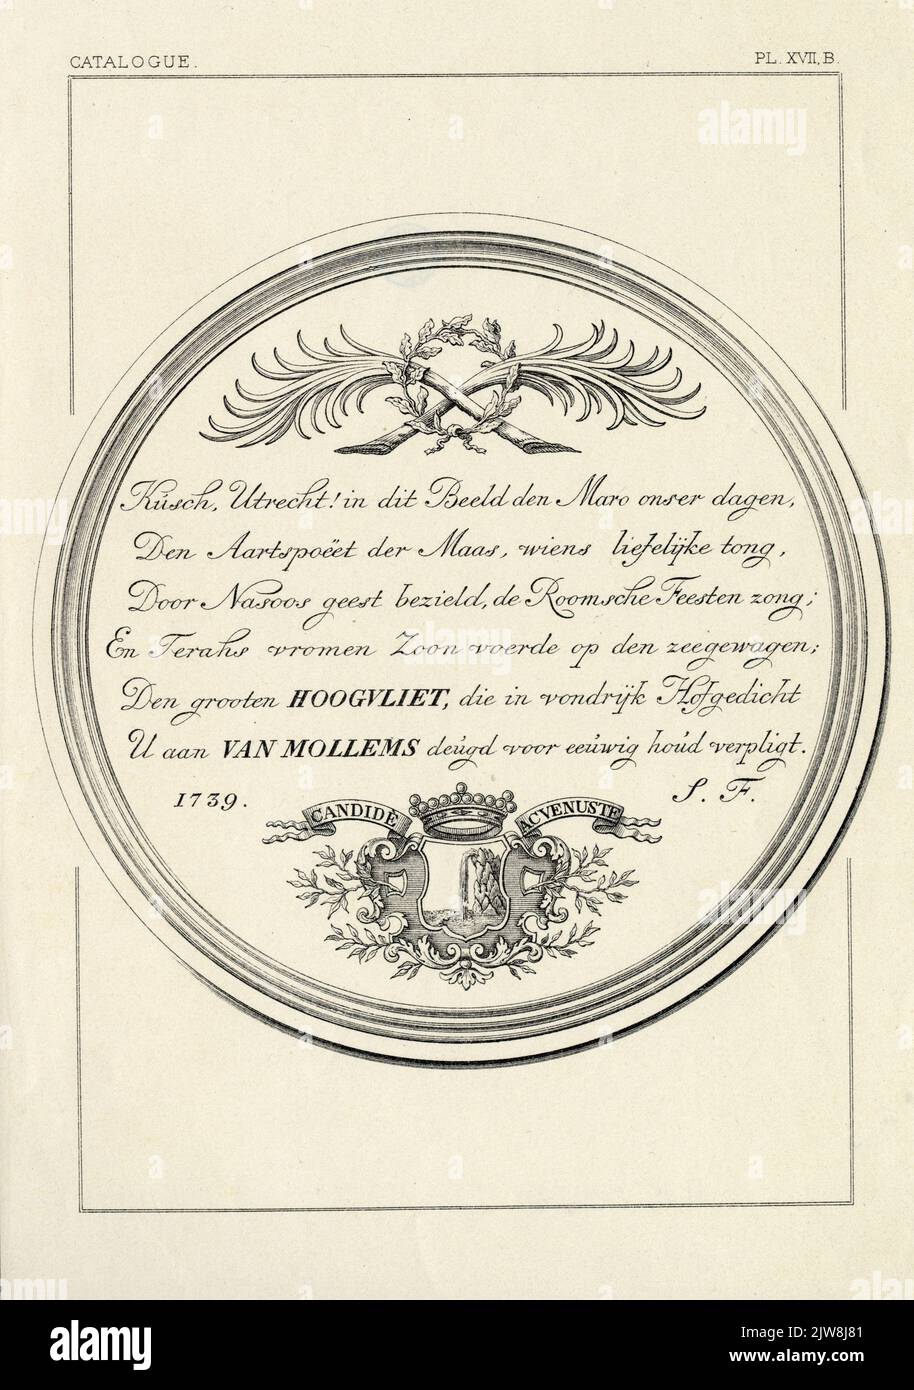 CATALOGUE.
PL. XVII, B.
Kùsch, Utrecht! in dit Beeld den Maro onser dagen,
Den Aartspoëet der Maas, wiens liefelijke tong,
Door Nasoos geest bezield, de Roomsche Feesten zong;
En Terahs vromen Zoon voerde op den zeegewagen;
Den grooten HOOGVLIET, die in vondrijk Hofgedicht
U aan VAN MOLLEMS deùgd voor eeùwig hoùd verpligt.
1739. S. F.
CANDIDE AC VENUSTE
alamy
Image ID: 2JW8J81
www.alamy.com